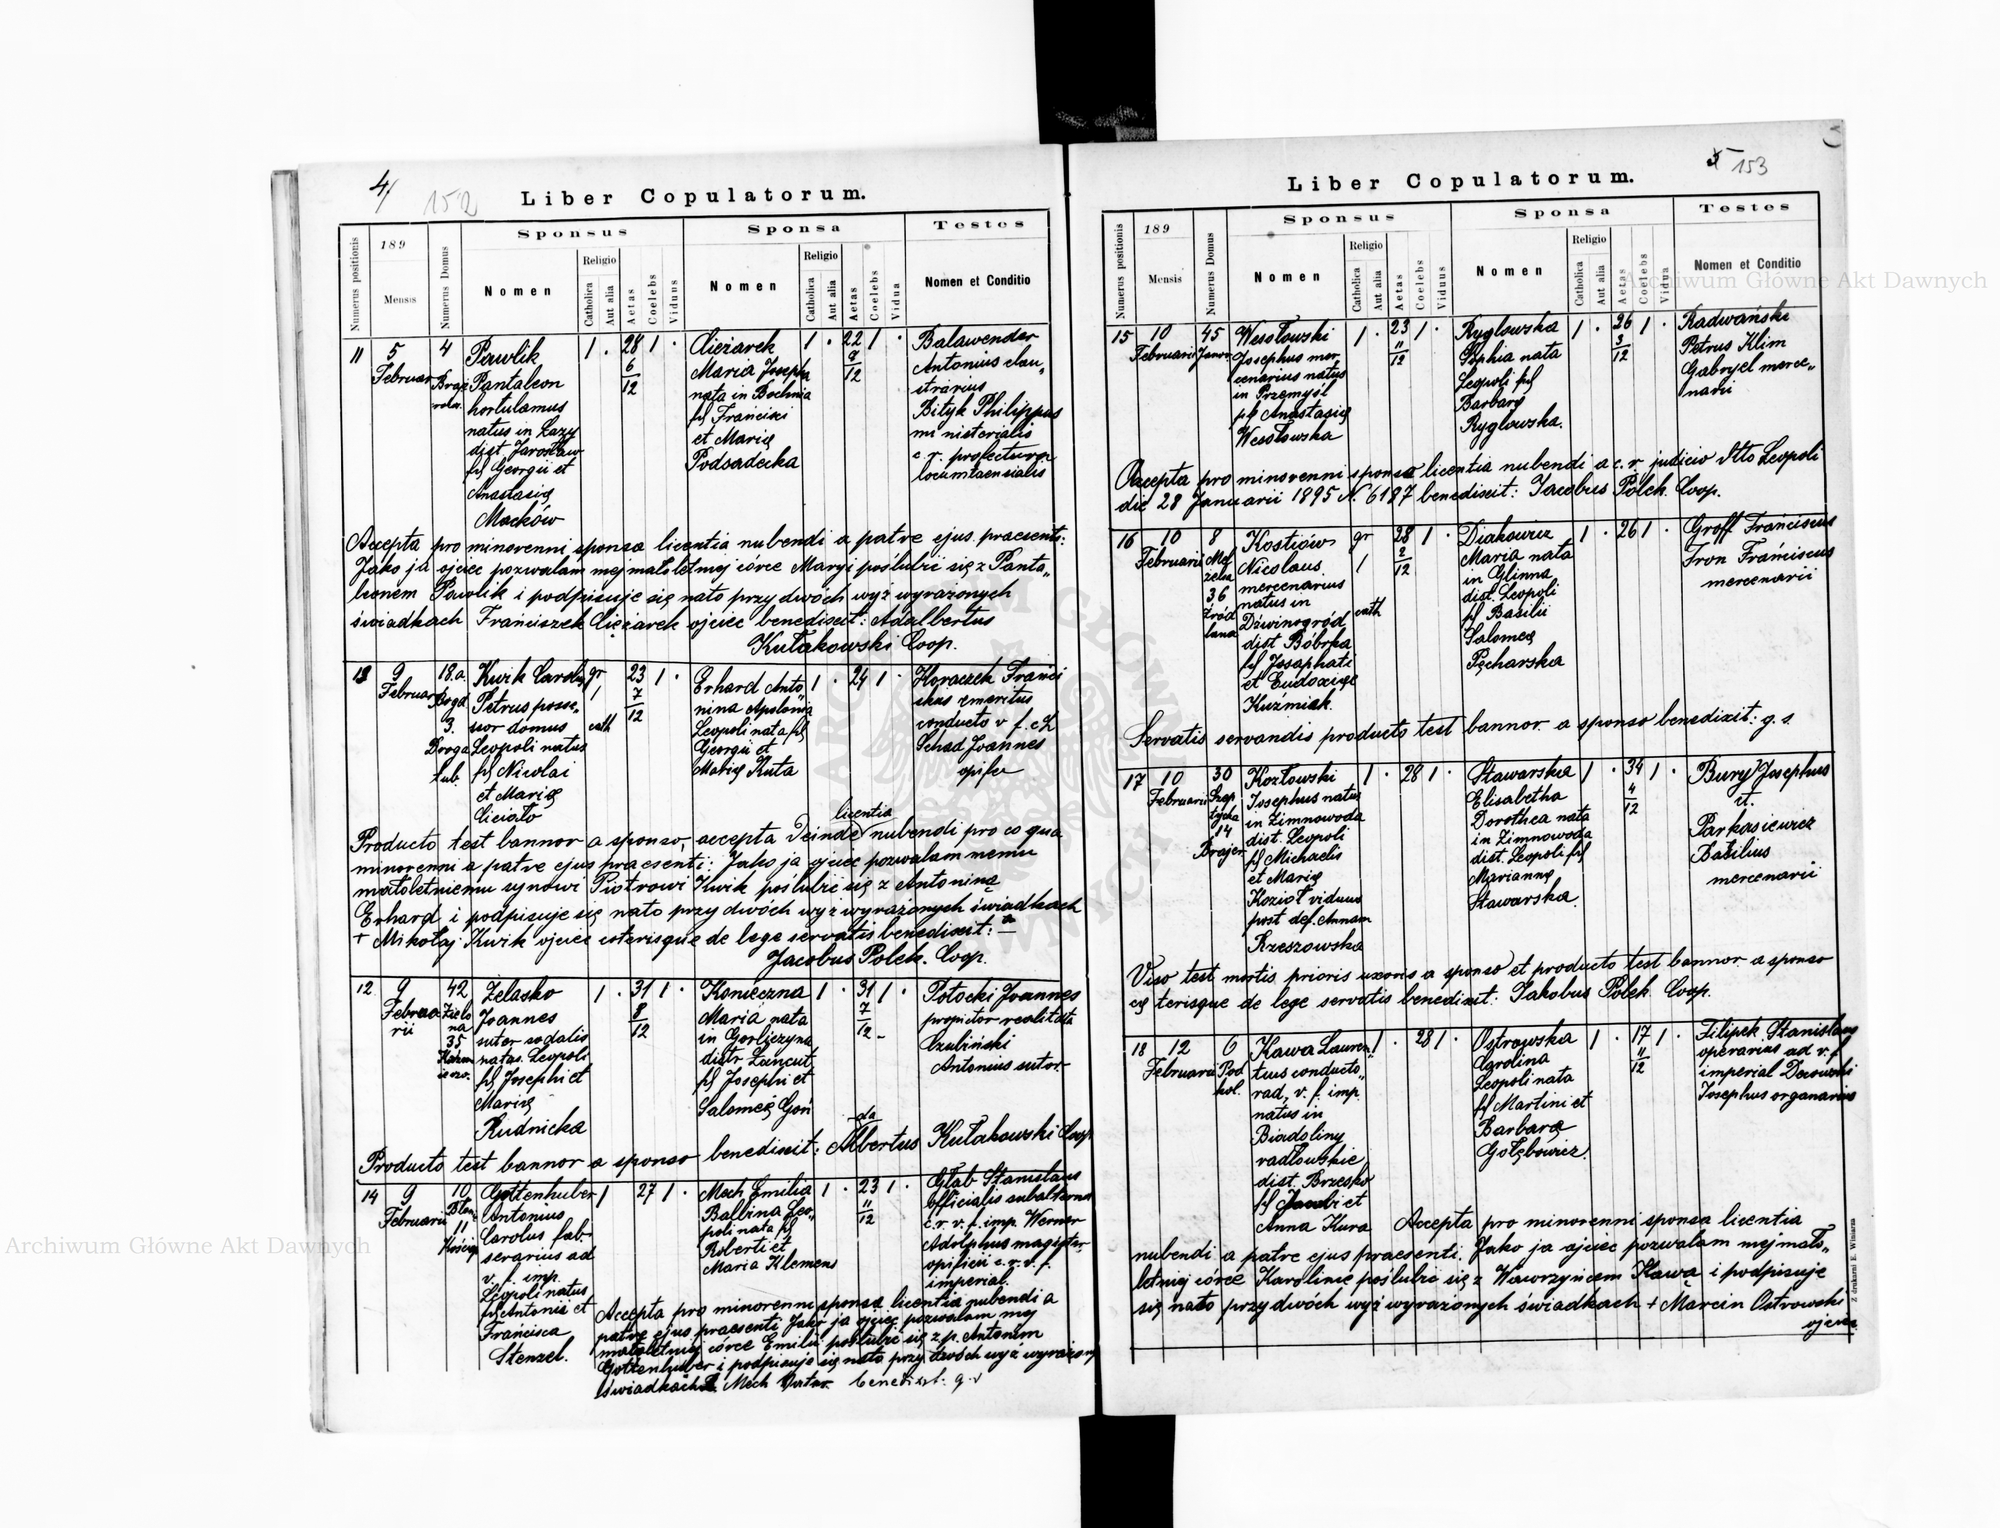 4/
152
Liber Copulatorum.
Numerus positionis
189
Mensis
Numerus Domus
Sponsus
Nomen
Religio
Catholica
Aut alia
Aetas
Coelebs
Viduus
Sponsa
Nomen
Religio
Catholica
Aut alia
Aetas
Coelebs
Vidua
Testes
Nomen et Conditio
11
5
Februar
4
Pawlik
Pantaleon
hortulamus
natus in Łazy
dist. Jarosław
fil Georgii et
Anastasię
Maćków
1 . 28 1 .
6
12
Ciężarek
Maria Josepha
nata in Bochnia
fil Franciski
et Marię
Podsadecka
1 . 22 1 .
9
12
Balawender
Antonius clau„
strarius
Bityk Philippus
ministerialis
c. r. prefectura
locumtaenialis
Accepta pro minorenni sponsa licentia nubendi a patre ejus praesenti:
Jako ja ojciec pozwalam mej małoletniej córce Maryi poślubić się z Panta„
leonem Pawlik i podpisuje się na to przy dwóch wyż wyrażonych
świadkach Franciszek Ciężarek ojciec benedixit: Adalbertus
Kułakowski Coop.
13
9
Februar
18.a.
Boga
3.
Droga
Lub.
Kwik Carolus
Petrus posse„
sor domus
Leopoli natus
fil Nicolai
et Marię
Ciciało
gr
1
cath
23 1 .
7
12
Erhard Anto„
nina Apolonia
Leopoli nata fil
Georgii et
Marię Ruta
1 . 24 1 .
Horaczek Franci
skus emeritus
conductor v. f. c L
Schad Joannes
opifer
licentia
Producto test bannor a sponso, accepta Deinde nubendi pro eo qua
minorenni a patre ejus praesenti: Jako ja ojciec pozwalam memu
małoletniemu synowi Piotrowi Kwik poślubić się z Antoniną
Erhard i podpisuje się na to przy dwóch wyż wyrażonych świadkach
+ Mikołaj Kwik ojciec ceterisque de lege servatis benedixit:
Jacobus Polek. Coop.
12
9
Februa
rii
42
Zielo
na
35
Żelasko
Joannes
sutor sodalis
natus Leopoli
fil Josephi et
Marię
Rudnicka
1 . 31 1 .
8
12
Konieczna
Maria nata
in Gorliczyna
distr Łańcut
fil Josephi et
Salomeę Goń
1 . 31 1 .
7
12
Potocki Joannes
proprietor realitatis
Czubiński
Antonius sutor
da
Producto test bannor a sponso benedixit: Albertus Kułakowski Coop.
14
9
Februarii
10
11
Gottenhuber
Antonius
Carolus fab„
serarius ad
v. f. imp.
Leopoli natus
fil Antonii et
Francisca
Stenzel.
1 27 1 .
Mech Emilia
Balbina Leo„
poli nata fil
Roberti et
Maria Klemens
1 . 23 1 .
11
12
Głąb Stanislaus
officialis subalternus
c. r. v. f. imp. Werner
Adolphus magister
opificii c. r. v. f.
imperial.
Accepta pro minorenni sponsa licentia nubendi a
patre ejus praesenti Jako ja ojciec pozwalam mej
małoletniej córce Emilii poślubić się z p. Antonim
Gottenhuber i podpisuje się na to przy dwóch wyż wyrażonych
świadkach Mech benedixit: q. s
153
Liber Copulatorum.
Numerus positionis
189
Mensis
Numerus Domus
Sponsus
Nomen
Religio
Catholica
Aut alia
Aetas
Coelebs
Viduus
Sponsa
Nomen
Religio
Catholica
Aut alia
Aetas
Coelebs
Vidua
Testes
Nomen et Conditio
15
10
Februarii
45
Janow
Wesołowski
Josephus mer„
cenarius natus
in Przemyśl
fil Anastasię
Wesołowska
1 . 23 1 .
11
12
Ryglowska
Sophia nata
Leopoli fil
Barbarę
Ryglowska.
1 . 26 1 .
3
12
Radwański
Petrus Klim
Gabryel merce„
narii
Accepta pro minorenni sponso licentia nubendi a c. r. judicio dtto Leopoli
die 28 Januarii 1895 N. 6187 benedixit: Jacobus Polek. Coop.
16
10
Februarii
8
36
Źród
lana
Kostiów
Nicolaus
mercenarius
natus in
Dźwinogród
dist Bóbrka
fil Josaphati
et Eudoxię
Kuźmiak.
gr
1
cath
28 1 .
2
12
Diakowicz
Maria nata
in Glinna
dist. Leopoli
fil Basilii
Salomeę
Pęcharska
1 . 26 1 .
Groff Franciscus
Fron Franciscus
mercenarii
Servatis servandis producto test bannor. a sponso benedixit: q. s.
17
10
Februarii
30
Szep
tycka
14
Brajer
Kozłowski
Josephus natus
in Zimnowoda
dist. Leopoli
fil Michaelis
et Marię
Kozioł viduus
post def. Annam
Rzeszowska
1 . 28 1 .
Stawarska
Elisabetha
Dorothea nata
in Zimnowoda
dist. Leopoli fil
Mariannę
Stawarska.
1 . 34 1 .
4
12
Bury Josephus
et.
Parkasiewicz
Basilius
mercenarii
Viso test mortis prioris uxoris a sponso et producto test bannor. a sponso
cę terisque de lege servatis benedixit: Jakobus Polek Coop.
18
12
Februarii
6
Pod
kol.
Kawa Lauren„
tius conducto„
rad, v. f. imp.
natus in
Biadoliny
radłowskie
dist. Brzesko
fil Jacobi et
Anna Kura
1 . 28 1 .
Ostrowska
Carolina
Leopoli nata
fil Martini et
Barbarę
Gołębowicz.
1 . 17 1 .
11
12
Filipek Stanislaus
operarius ad v. f
imperial
Josephus organarius
Accepta pro minorenni sponsa licentia
nubendi a patre ejus praesenti. Jako ja ojciec pozwalam mej mało„
letniej córce Karolinie poślubić się z Wawrzyńcem Kawa i podpisuje
się na to przy dwóch wyż wyrażonych świadkach + Marcin Ostrowski
ojciec
Z drukarni E. Winiarza
Archiwum Główne Akt Dawnych
Archiwum Główne Akt Dawnych